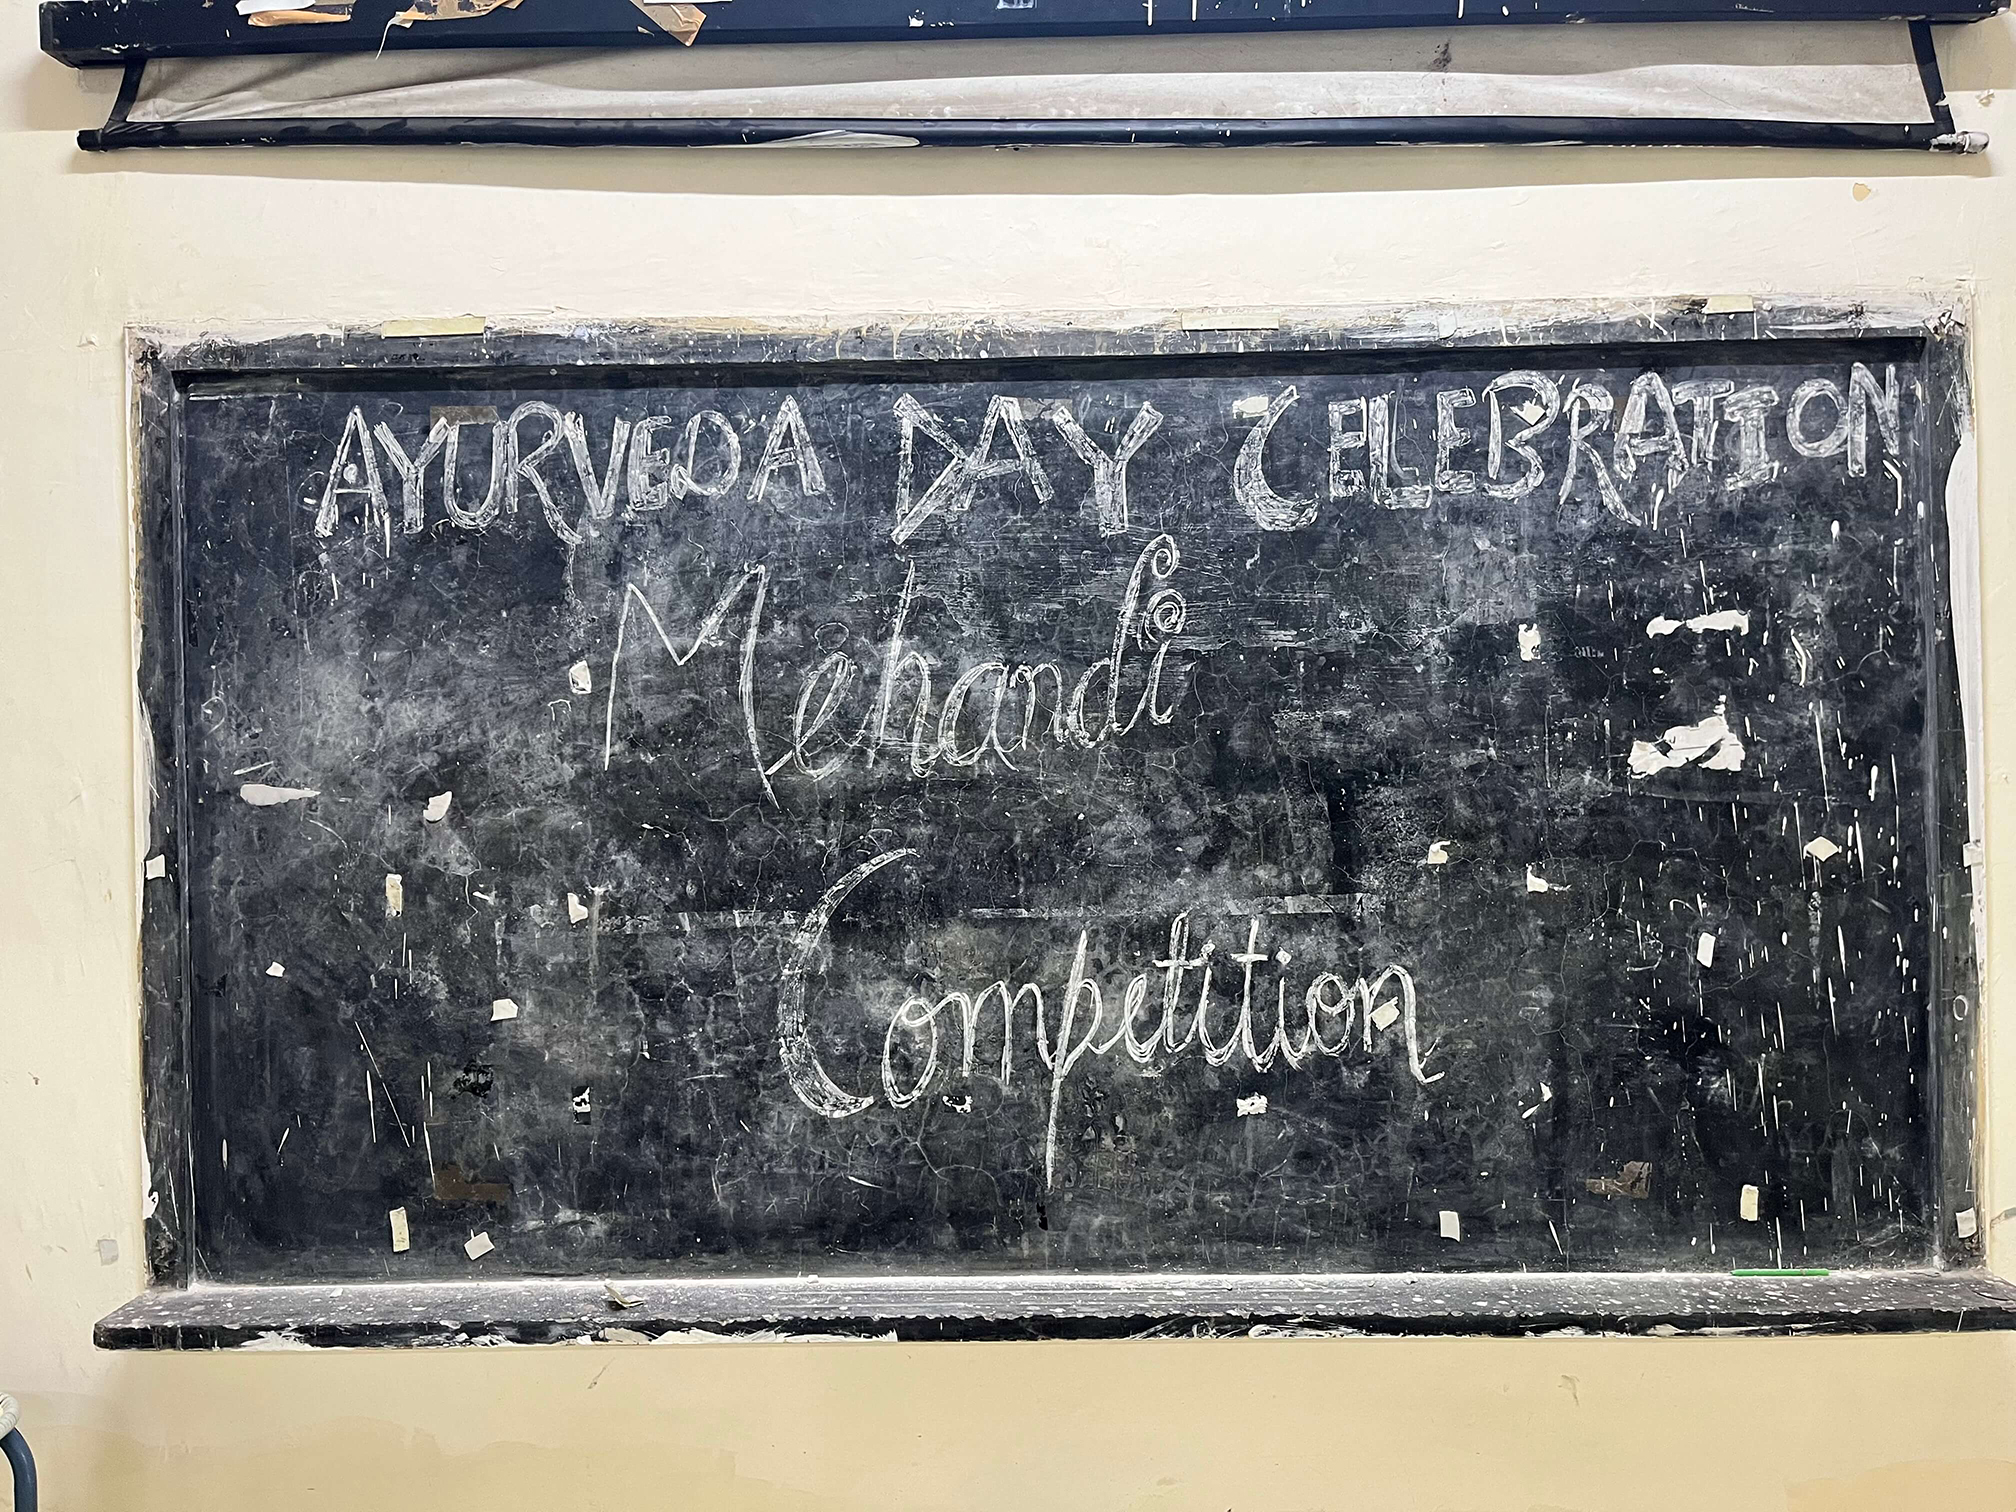 AYURVEDA DAY CELEBRATION
Mehandi
Competition